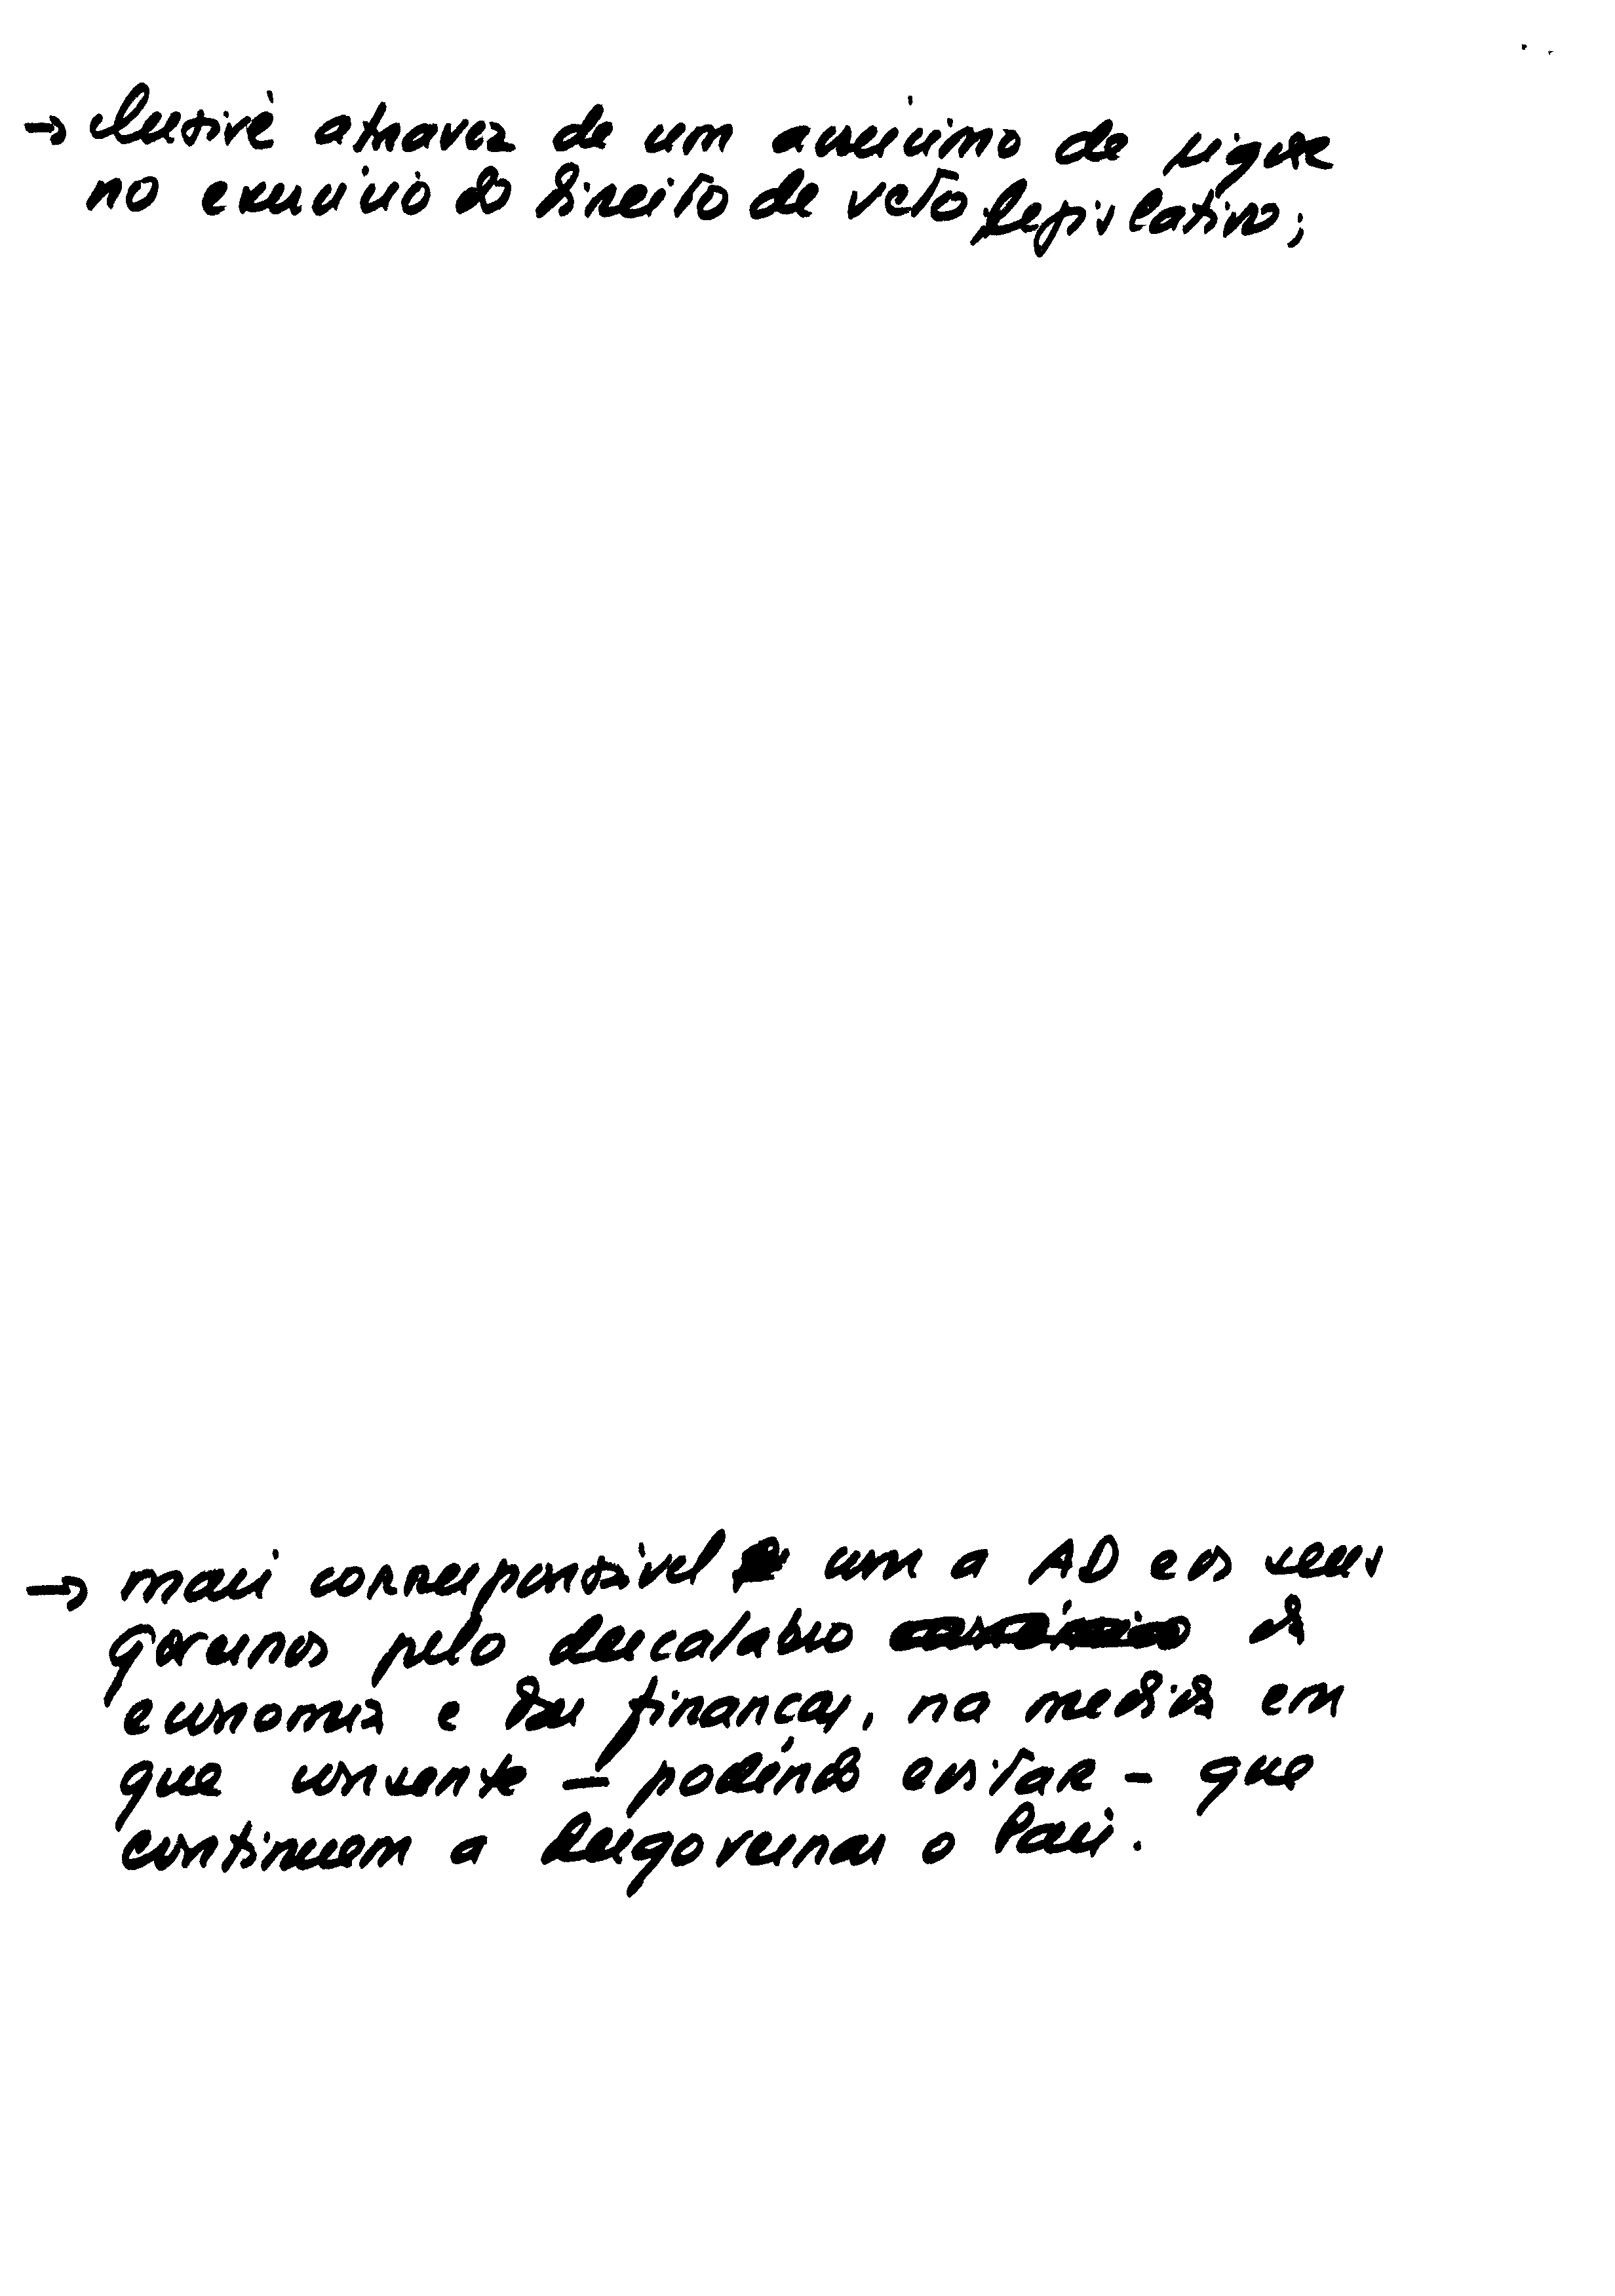 → através de um acréscimo de rigor
no exercício do direito de veto legislativo;
→ mais corresponsável com a AD e os seus
governos pelo descalabro da
economia e das finanças, na medida em
que consente – podendo evitar – que
continuem a desgovernar o País.